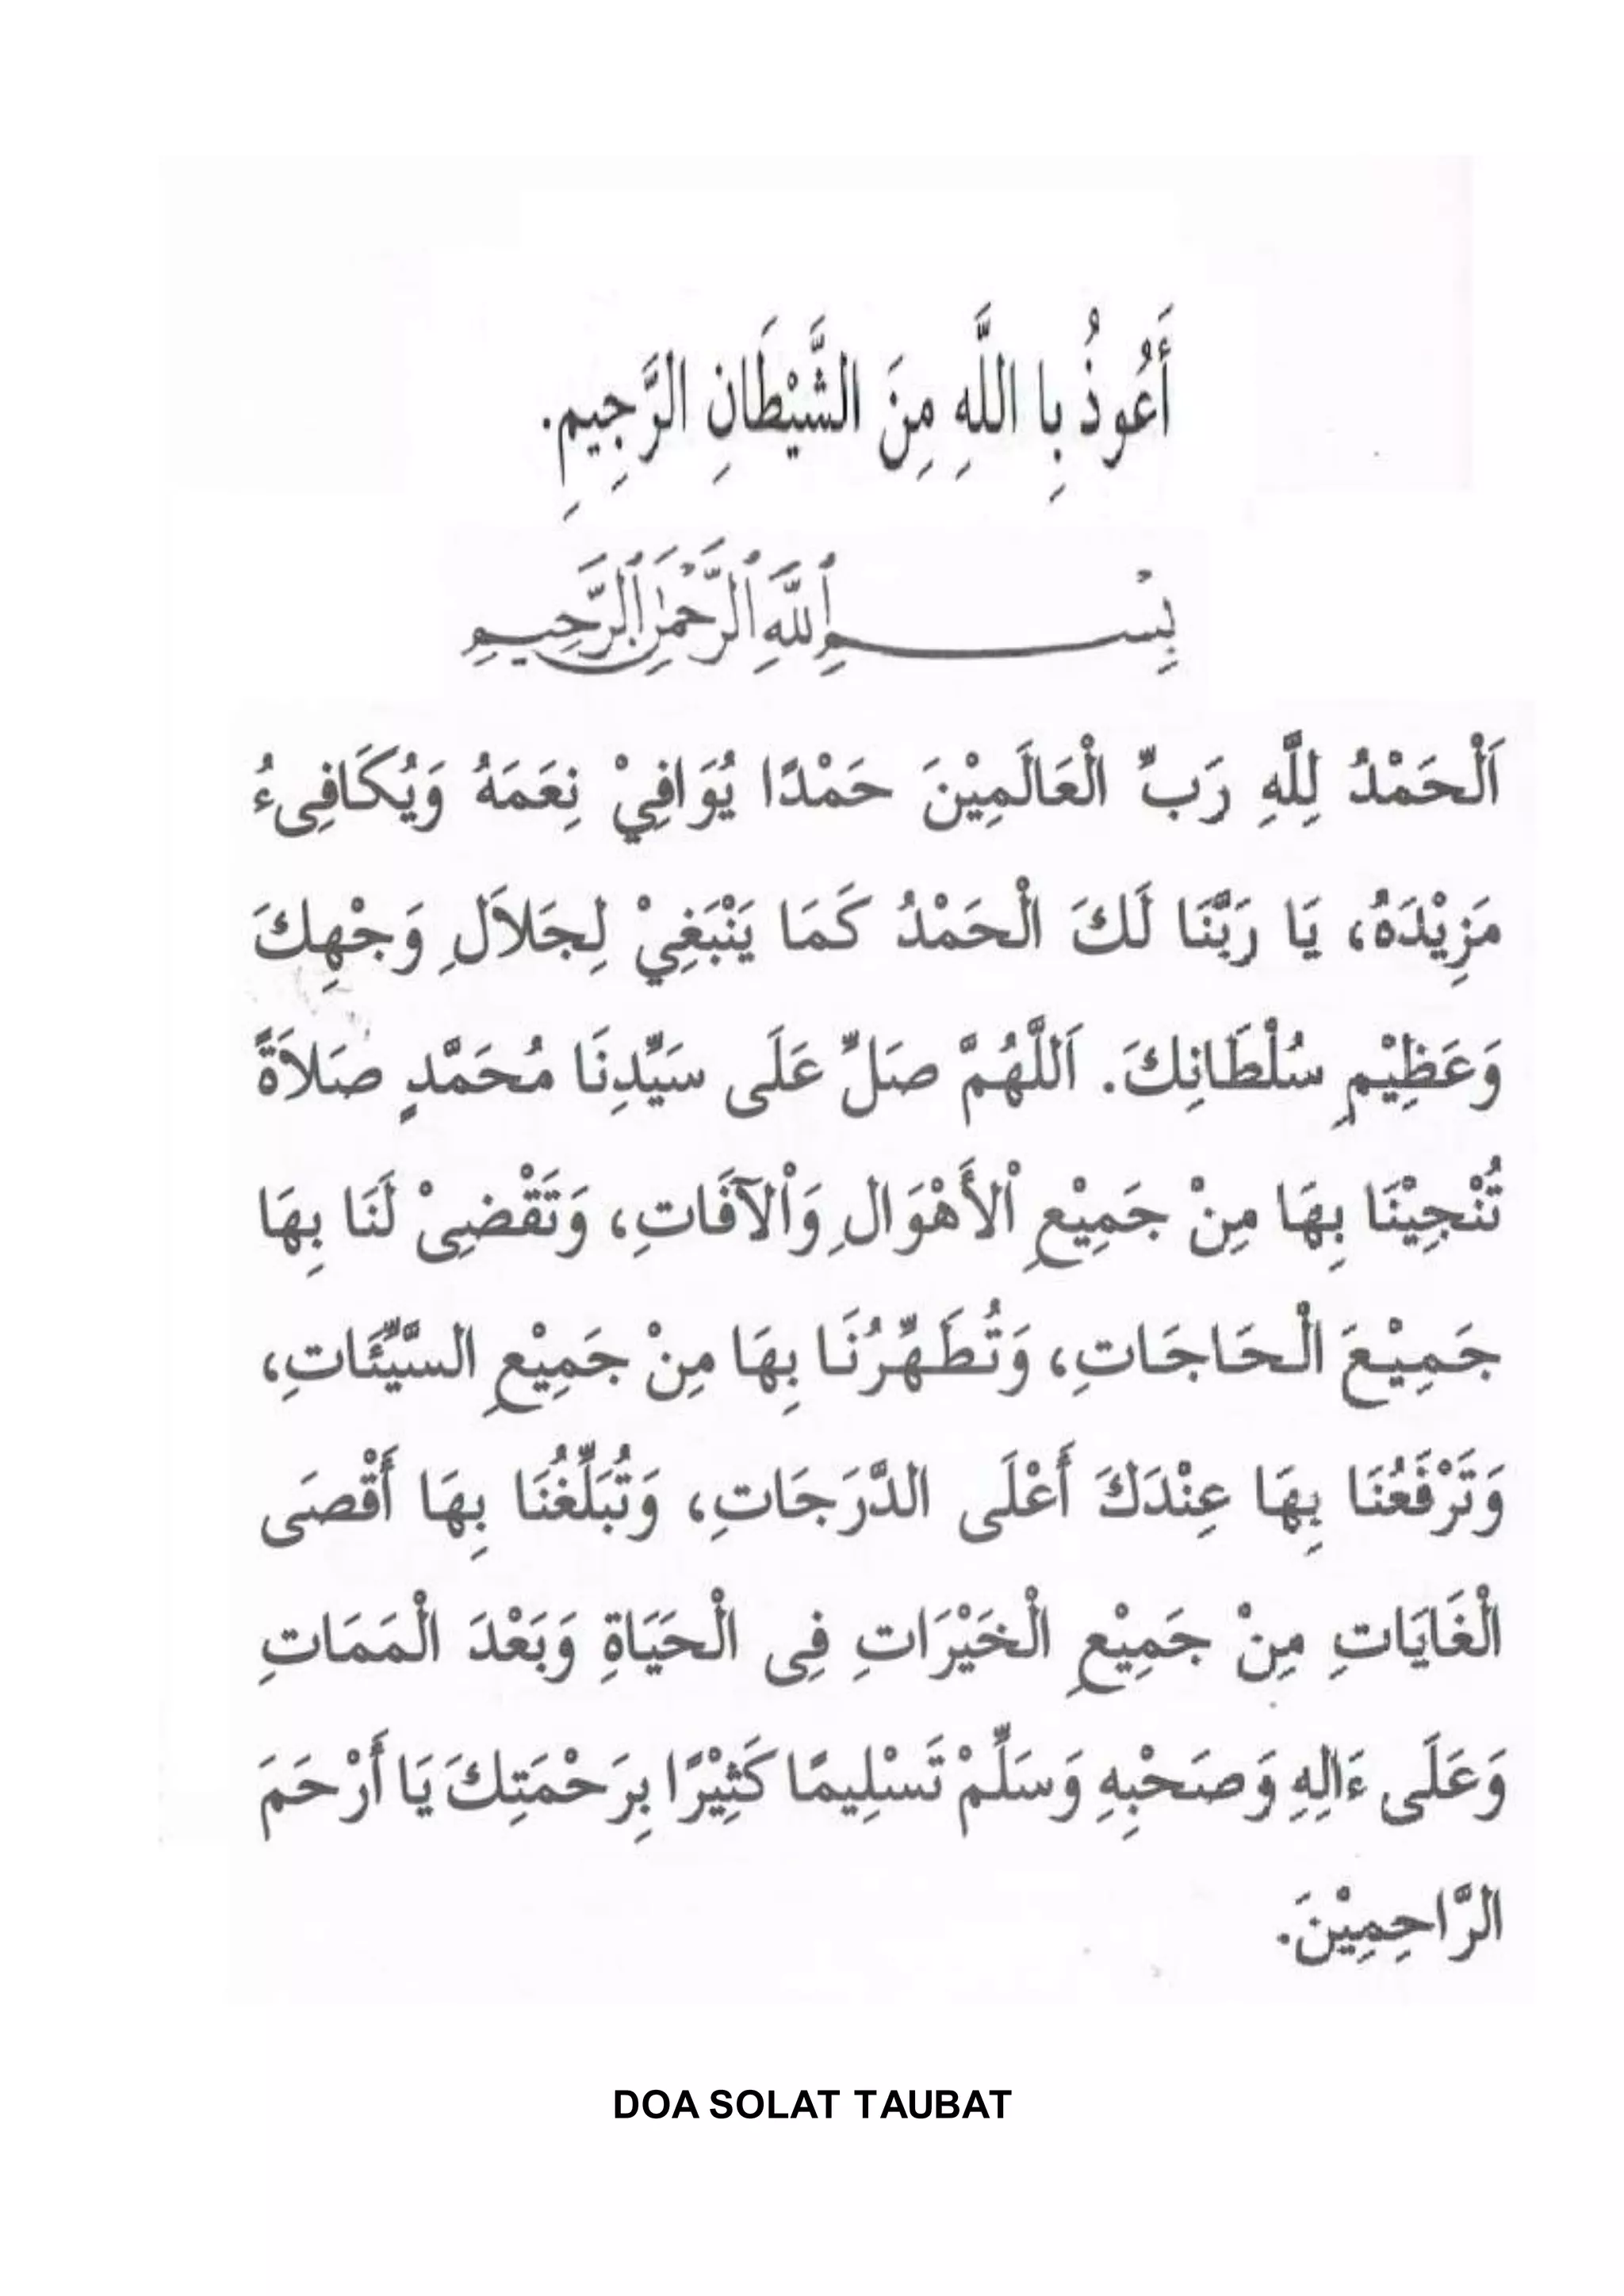 أَعُوذُ بِا اللَّهِ مِنَ الشَّيْطَانِ الرَّجِيمِ.
بِسْمِ ٱللَّهِ ٱلرَّحْمَٰنِ ٱلرَّحِيمِ
اَلْحَمْدُ لِلَّهِ رَبِّ الْعَالَمِيْنَ حَمْدًا يُوَافِيْ نِعَمَهُ وَيُكَافِىءُ
مَزِيْدَهُ، يَا رَبَّنَا لَكَ الْحَمْدُ كَمَا يَنْبَغِيْ لِجَلاَلِ وَجْهِكَ
وَعَظِيْمِ سُلْطَانِكَ. اَللَّهُمَّ صَلِّ عَلَى سَيِّدِنَا مُحَمَّدٍ صَلاَةً
تُنْجِيْنَا بِهَا مِنْ جَمِيْعِ اْلأَهْوَالِ وَاْلآفَاتِ، وَتَقْضِىْ لَنَا بِهَا
جَمِيْعَ الْحَاجَاتِ، وَتُطَهِّرُنَا بِهَا مِنْ جَمِيْعِ السَّيِّئَاتِ،
وَتَرْفَعُنَا بِهَا عِنْدَكَ أَعْلَى الدَّرَجَاتِ، وَتُبَلِّغُنَا بِهَا أَقْصَى
الْغَايَاتِ مِنْ جَمِيْعِ الْخَيْرَاتِ فِى الْحَيَاةِ وَبَعْدَ الْمَمَاتِ
وَعَلَى ءَالِهِ وَصَحْبِهِ وَسَلِّمْ تَسْلِيمًا كَثِيْرًا بِرَحْمَتِكَ يَا أَرْحَمَ
الرَّاحِمِيْنَ.
DOA SOLAT TAUBAT